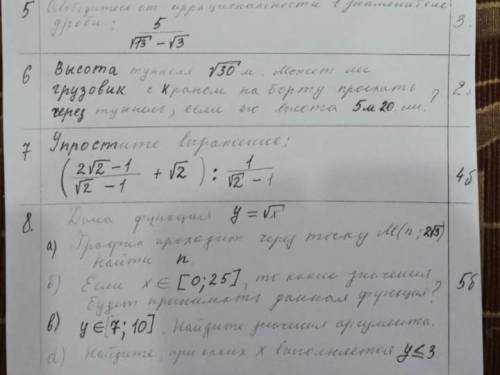 5 Освободитесь от иррациональности в знаменателе 3.
дроби: 5 / (√13 − √3)
6 Высота туннеля √30 м. Может ли 2б
грузовик с краном на борту проехать
через туннель, если его высота 5м 20 см. ?
7 Упростите выражение:
( (2√2 − 1) / (√2 − 1) + √2 ) : 1 / (√2 − 1) 4б
8. Дана функция y = √x
а) График проходит через точку M(n; 2√3)
Найти n
б) Если x ∈ [0; 25], то какие значения 5б
будет принимать данная функция?
в) y ∈ [7; 10]. Найдите значения аргумента.
d) Найдите, при каких x выполняется y ≤ 3